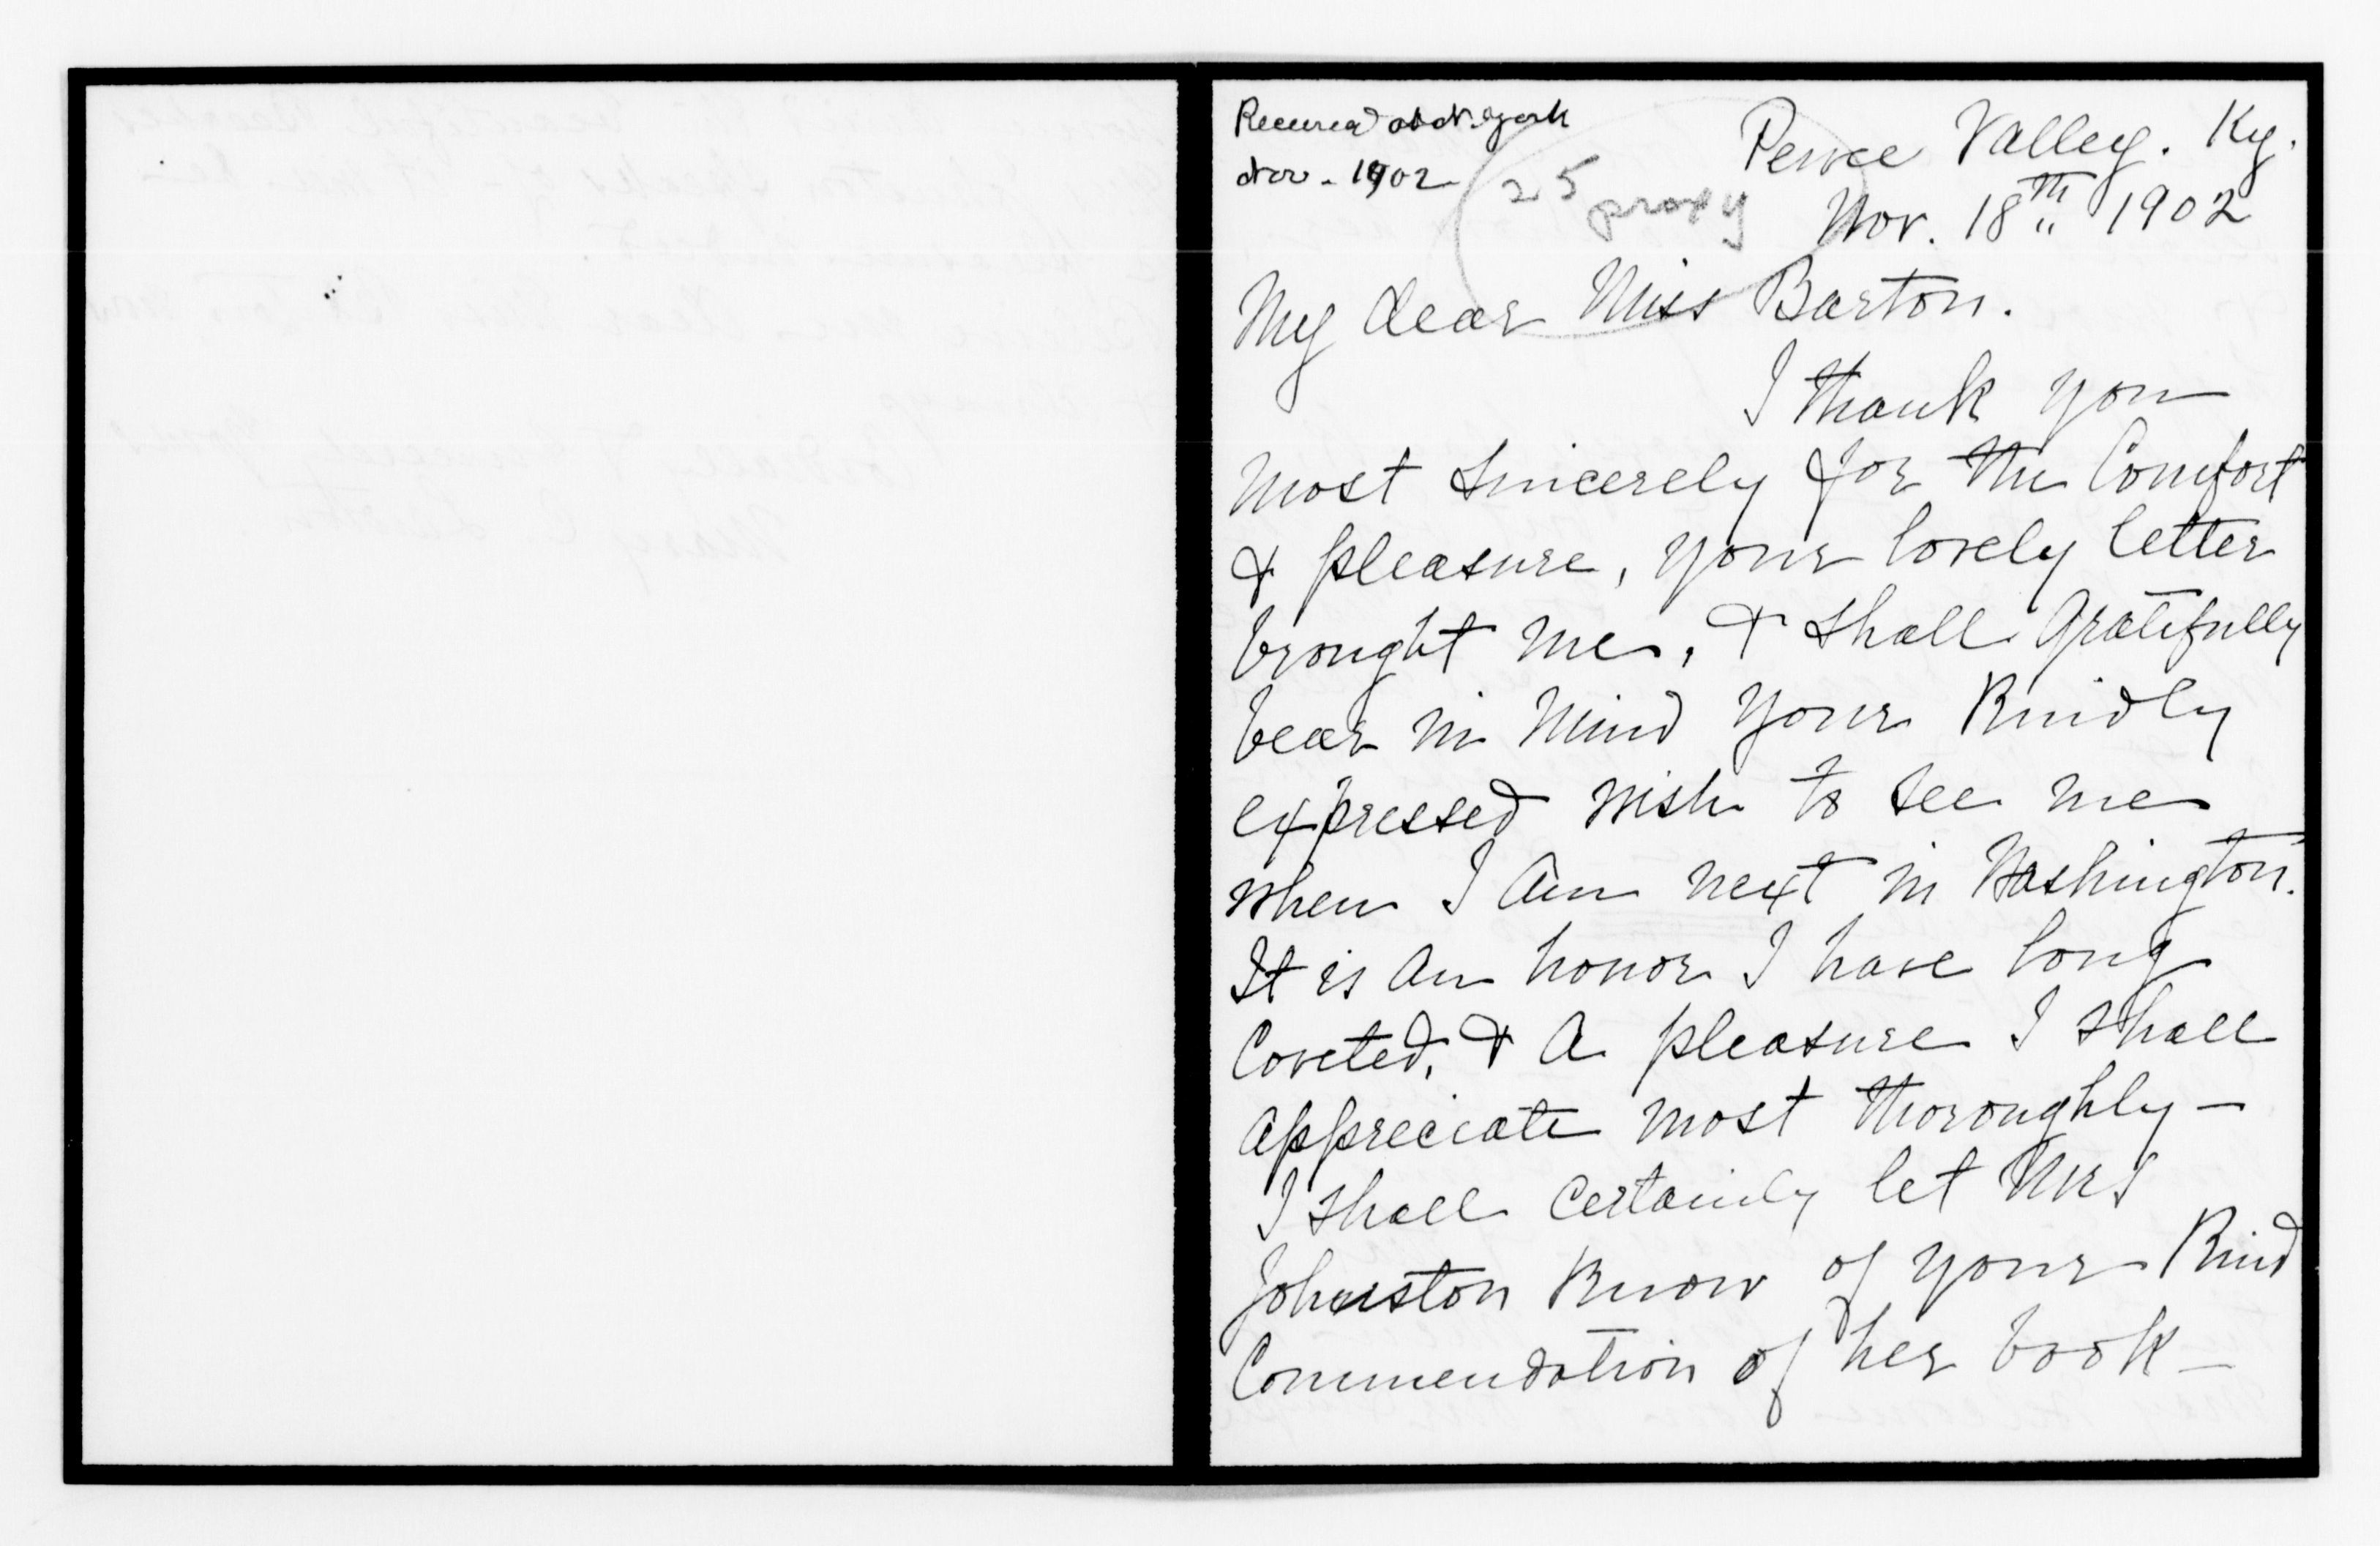 Received at N. York
Nov. 1902
25
proxy
Pewee Valley. Ky.
Nov. 18th 1902
My dear Miss Barton.
I thank you
most sincerely for the Comfort
& pleasure, your lovely letter
brought me, & shall gratefully
bear in mind your kindly
expressed wish to see me
when I am next in Washington.
It is an honor I have long
Coveted, & a pleasure I shall
appreciate most thoroughly —
I shall certainly let Mrs
Johnston know of your kind
Commendation of her book —